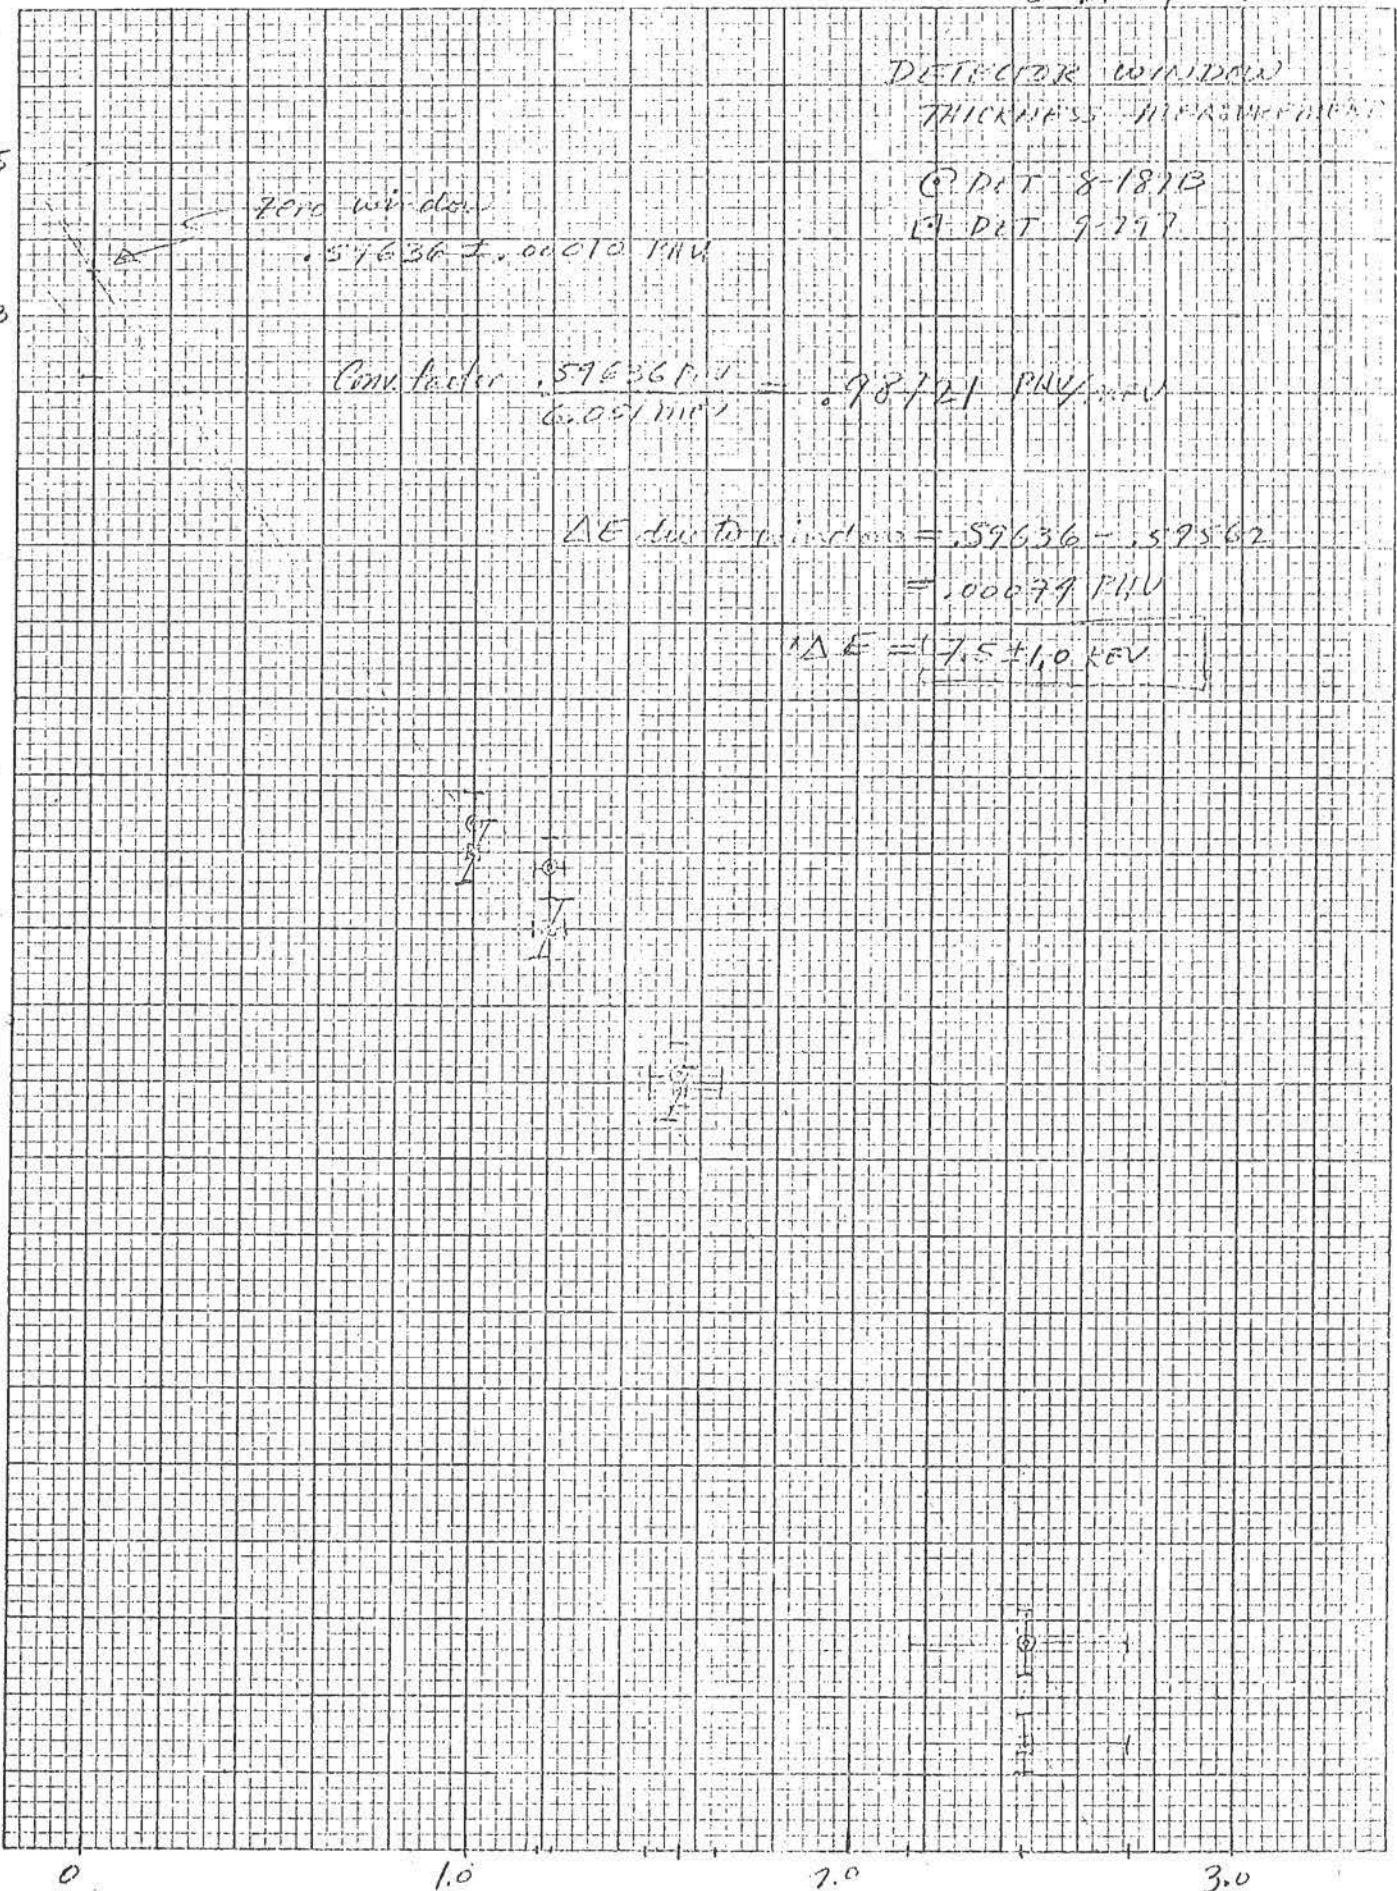 DETECTOR WINDOW
THICKNESS MEASUREMENT
⊙ DET 8-187B
⊡ DET 9-797
zero window
.59636 ± .00010 PHV
Conv. factor .59636 PHV = .98721 PHV/MEV
6.051 MEV
ΔE due to window = .59636 - .59562
= .00074 PHV
ΔE = 7.5 ± 1.0 KEV
0 1.0 2.0 3.0